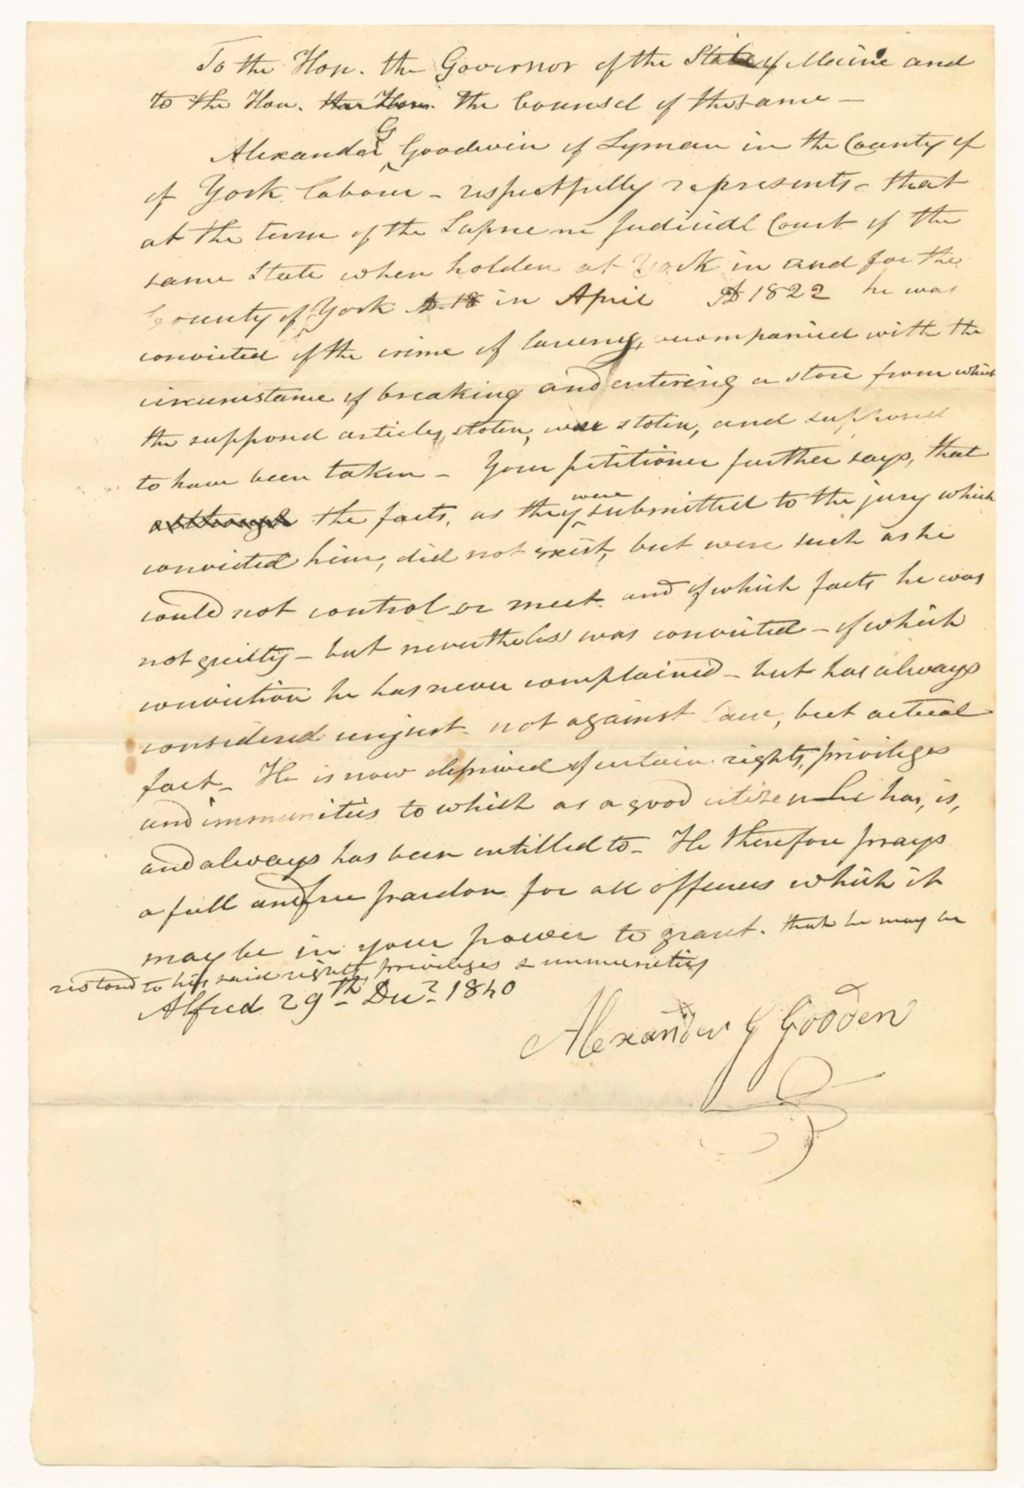 To the Hon. the Governor of the State of Maine and
to the Hon. the Hon. the Counsel of the same —
Alexander G Goodwin of Lyman in the County of
of York, labourer — respectfully represents — that
at the term of the Supreme Judicial Court of the
same State when holden at York in and for the
County of York A. 18 in April AD 1822 he was
convicted of the crime of larceny, accompanied with the
circumstance of breaking and entering a store from which
the supposed articles, stolen, were stolen, and supposed
to have been taken — Your petitioner further says, that
although the facts, as they were submitted to the jury which
convicted him, did not exist, but were such as he
could not control or meet and of which facts he was
not guilty — but nevertheless was convicted — of which
conviction he has never complained — but has always
considered unjust not against law, but actual
fact — He is now deprived of certain rights, privileges
and immunities to which as a good citizen he has, is,
and always has been entitled to — He therefore prays
a full and free pardon for all offences which it
may be in your power to grant. that he may be
restored to his said rights, privileges & immunities
Alfred 29th Decr. 1840
Alexander G Gooden